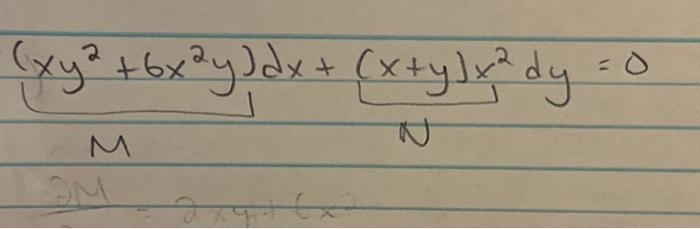 (xy² + 6x²y)dx + (x+y)x² dy = 0
M N
∂M = 2xy + 6x²